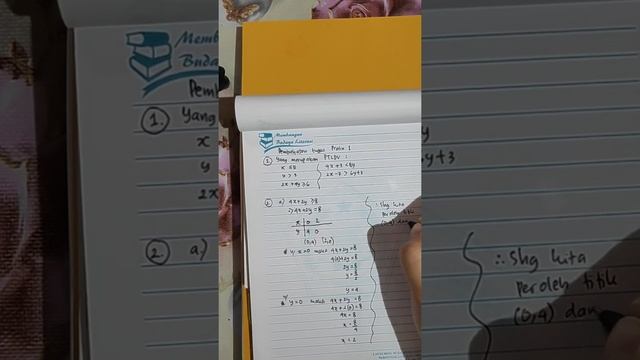 Membangun
Budaya Literasi
Pembahasan tugas Prolin 1
1. Yang merupakan PTLDV :
x ≤ 8
4x + 3 < 8y
y > 3
2x - 7 > 6y + 3
2x + 4y ≥ 6
2. a) 4x + 2y ≥ 8
4x + 2y = 8
x 0 2
y 4 0
(0,4) (2,0)
x = 0 maka 4x + 2y = 8
4(0) + 2y = 8
2y = 8
y = 8/2
y = 4
y = 0 maka 4x + 2y = 8
4x + 2(0) = 8
4x = 8
x = 8/4
x = 2
∴ Shg kita
peroleh titik
(0,4) dan